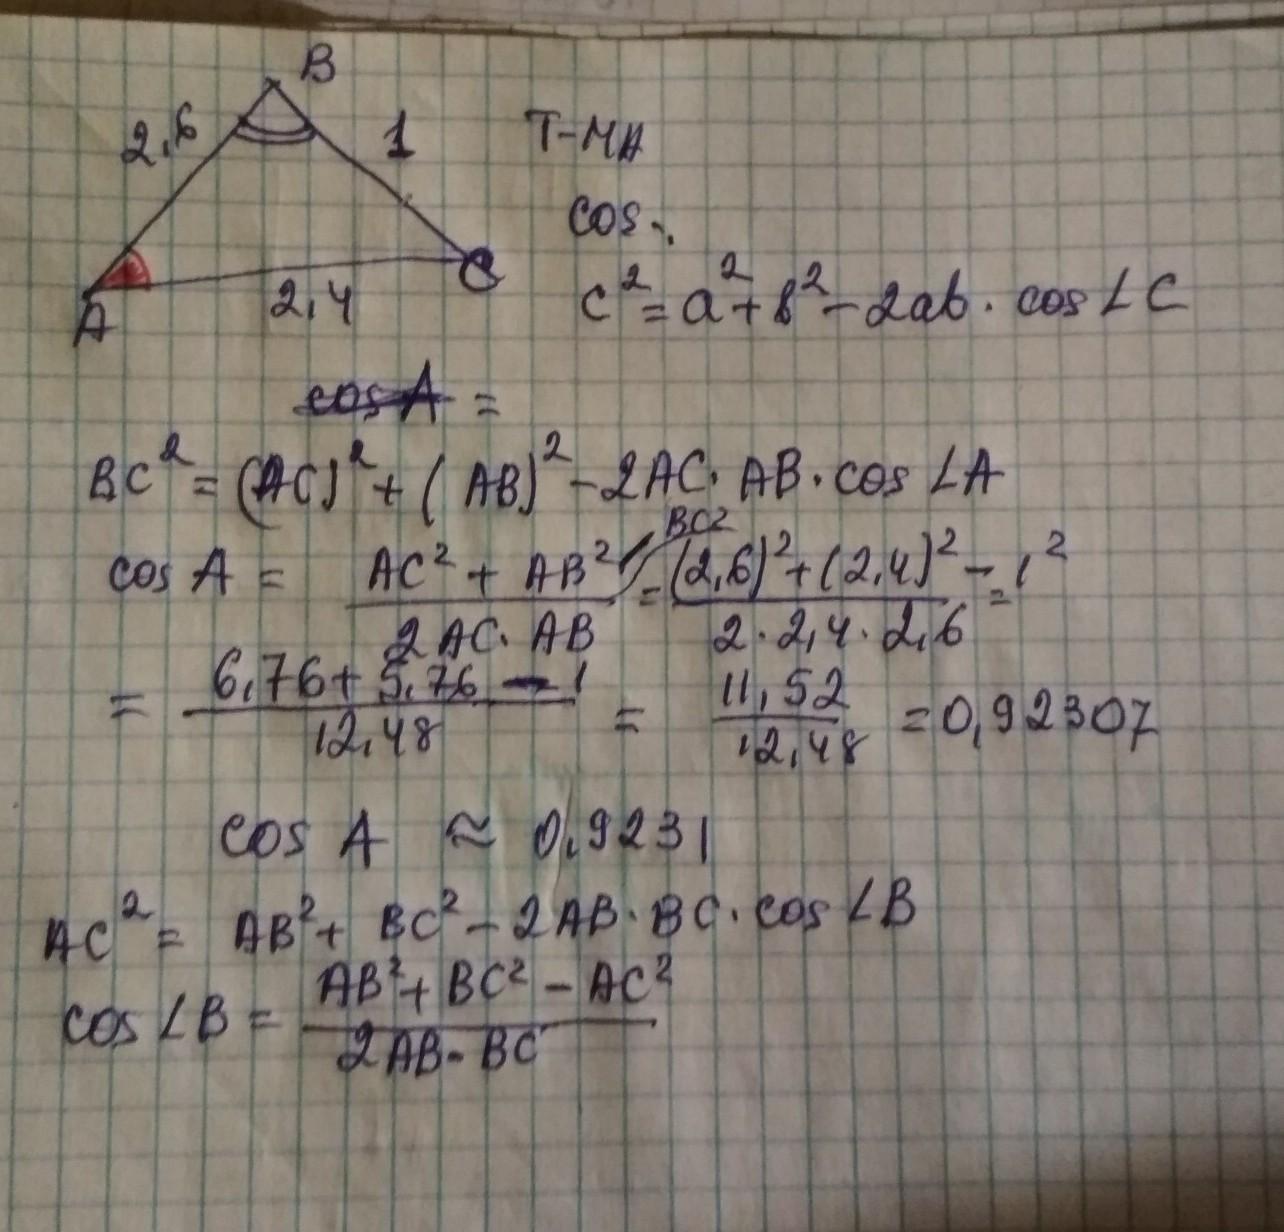 B
2,6
1
A
2,4
C
Т-МА
cos.
c² = a² + b² - 2ab · cos∠C
cos A =
BC² = (AC)² + (AB)² - 2AC · AB · cos∠A
cos A = (AC² + AB² - BC²) / (2AC · AB) = ((2,6)² + (2,4)² - 1²) / (2 · 2,4 · 2,6) =
= (6,76 + 5,76 - 1) / 12,48 = 11,52 / 12,48 = 0,92307
cos A ≈ 0,9231
AC² = AB² + BC² - 2AB · BC · cos∠B
cos∠B = (AB² + BC² - AC²) / (2AB · BC)